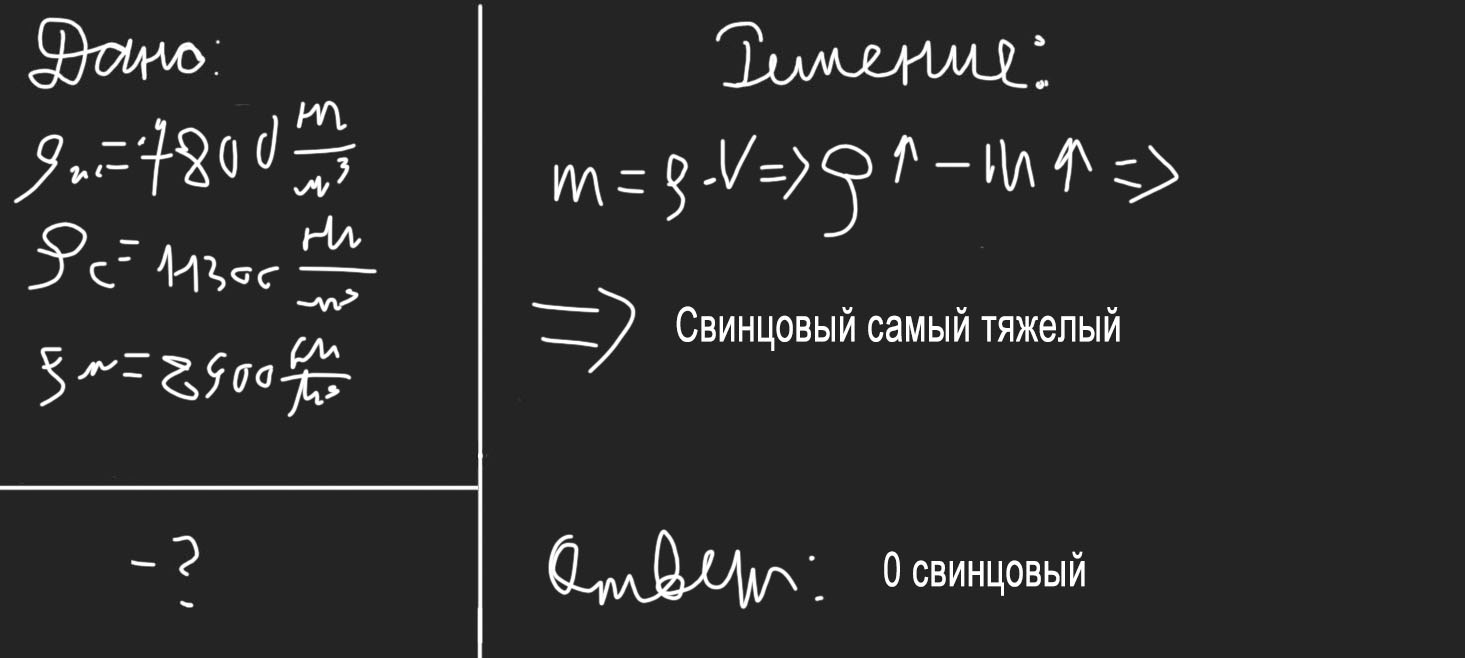 Дано:
ρж=7800 кг/м³
ρс=11300 кг/м³
= 2500 кг/м³
- ?
Решение:
m = ρ · V => ρ↑ – m↑ =>
=> Свинцовый самый тяжелый
Ответ: 0 свинцовый